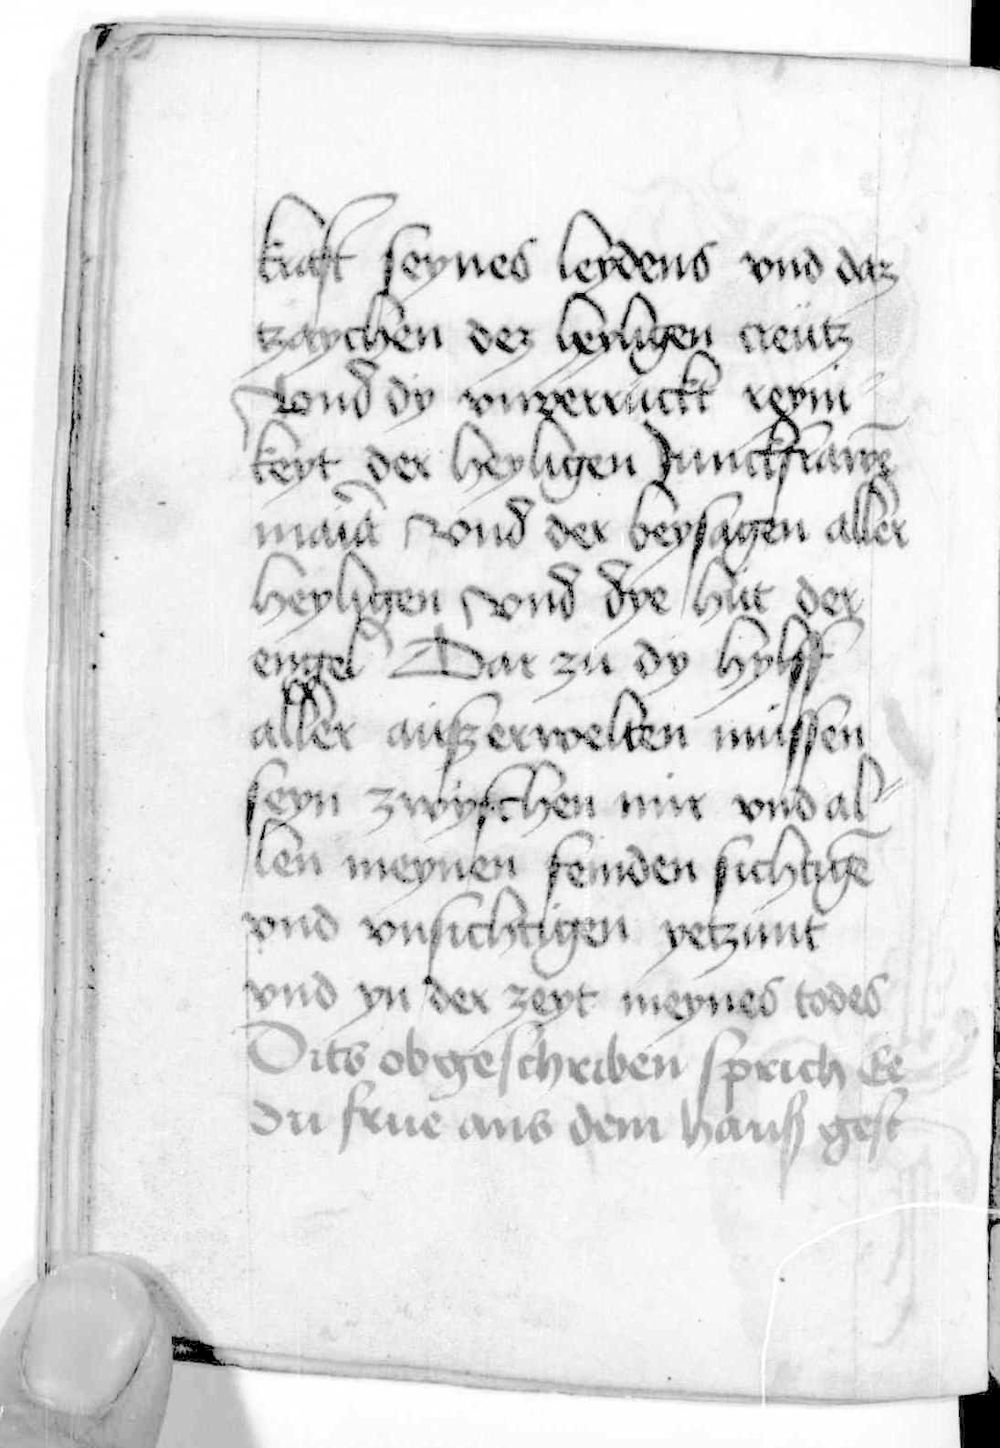 kraft seynes leydens vnd daz
tzaychen dez heyligen creütz
Vond dy vnverruckt reyni
keyt der heyligen Junckfrawē
maīa vond der beysagen aller
heyligen vnd dye hut der
engel Dar zu dy hylff
aller auszerwelten müssen
seyn zwyschen mir vnd al-
len meynen feinden sichtigē
vnd vnsichtigen yetzunt
vnd yn der zeyt meynes todes
Dits obgeschriben sprich Ee
Du frue aus dem hauß gest